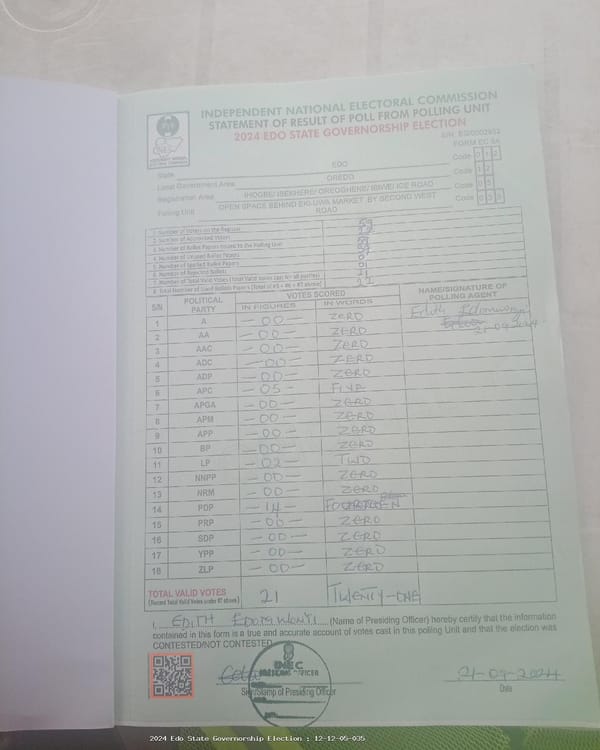 INDEPENDENT NATIONAL ELECTORAL COMMISSION
STATEMENT OF RESULT OF POLL FROM POLLING UNIT
2024 EDO STATE GOVERNORSHIP ELECTION
FORM EC 8A
State EDO Code 012
Local Government Area OREDO Code 12
Registration Area IHOGBE/ ISEKHERE/ OREOGHENE/ IBIWE/ ICE ROAD Code 05
Polling Unit OPEN SPACE BEHIND EKI-UWA MARKET BY SECOND WEST ROAD Code 035
1. Number of Voters on the Register
2. Number of Accredited Voters
3. Number of Ballot Papers Issued to the Polling Unit
4. Number of Unused Ballot Papers
5. Number of Spoiled Ballot Papers
6. Number of Rejected Ballots 01
7. Number of Total Valid Votes (Total Valid Votes cast for all parties) 21
8. Total Number of Used Ballot Papers (Total of #5 + #6 + #7 above) 22
S/N POLITICAL PARTY VOTES SCORED NAME/SIGNATURE OF POLLING AGENT
IN FIGURES IN WORDS
1 A -00- ZERO Edith
2 AA -00- ZERO 21-09-2024
3 AAC -00- ZERO
4 ADC -00- ZERO
5 ADP -00- ZERO
6 APC -05- FIVE
7 APGA -00- ZERO
8 APM -00- ZERO
9 APP -00- ZERO
10 BP -00- ZERO
11 LP -02- TWO
12 NNPP -00- ZERO
13 NRM -00- ZERO
14 PDP -14- FOURTEEN
15 PRP -00- ZERO
16 SDP -00- ZERO
17 YPP -00- ZERO
18 ZLP -00- ZERO
TOTAL VALID VOTES 21 TWENTY-ONE
(Record Total Valid Votes under #7 above)
I, EDITH (Name of Presiding Officer) hereby certify that the information
contained in this form is a true and accurate account of votes cast in this polling Unit and that the election was
CONTESTED/NOT CONTESTED
INEC
PRESIDING OFFICER
21-09-2024
Sign/Stamp of Presiding Officer Date
2024 Edo State Governorship Election : 12-12-05-035